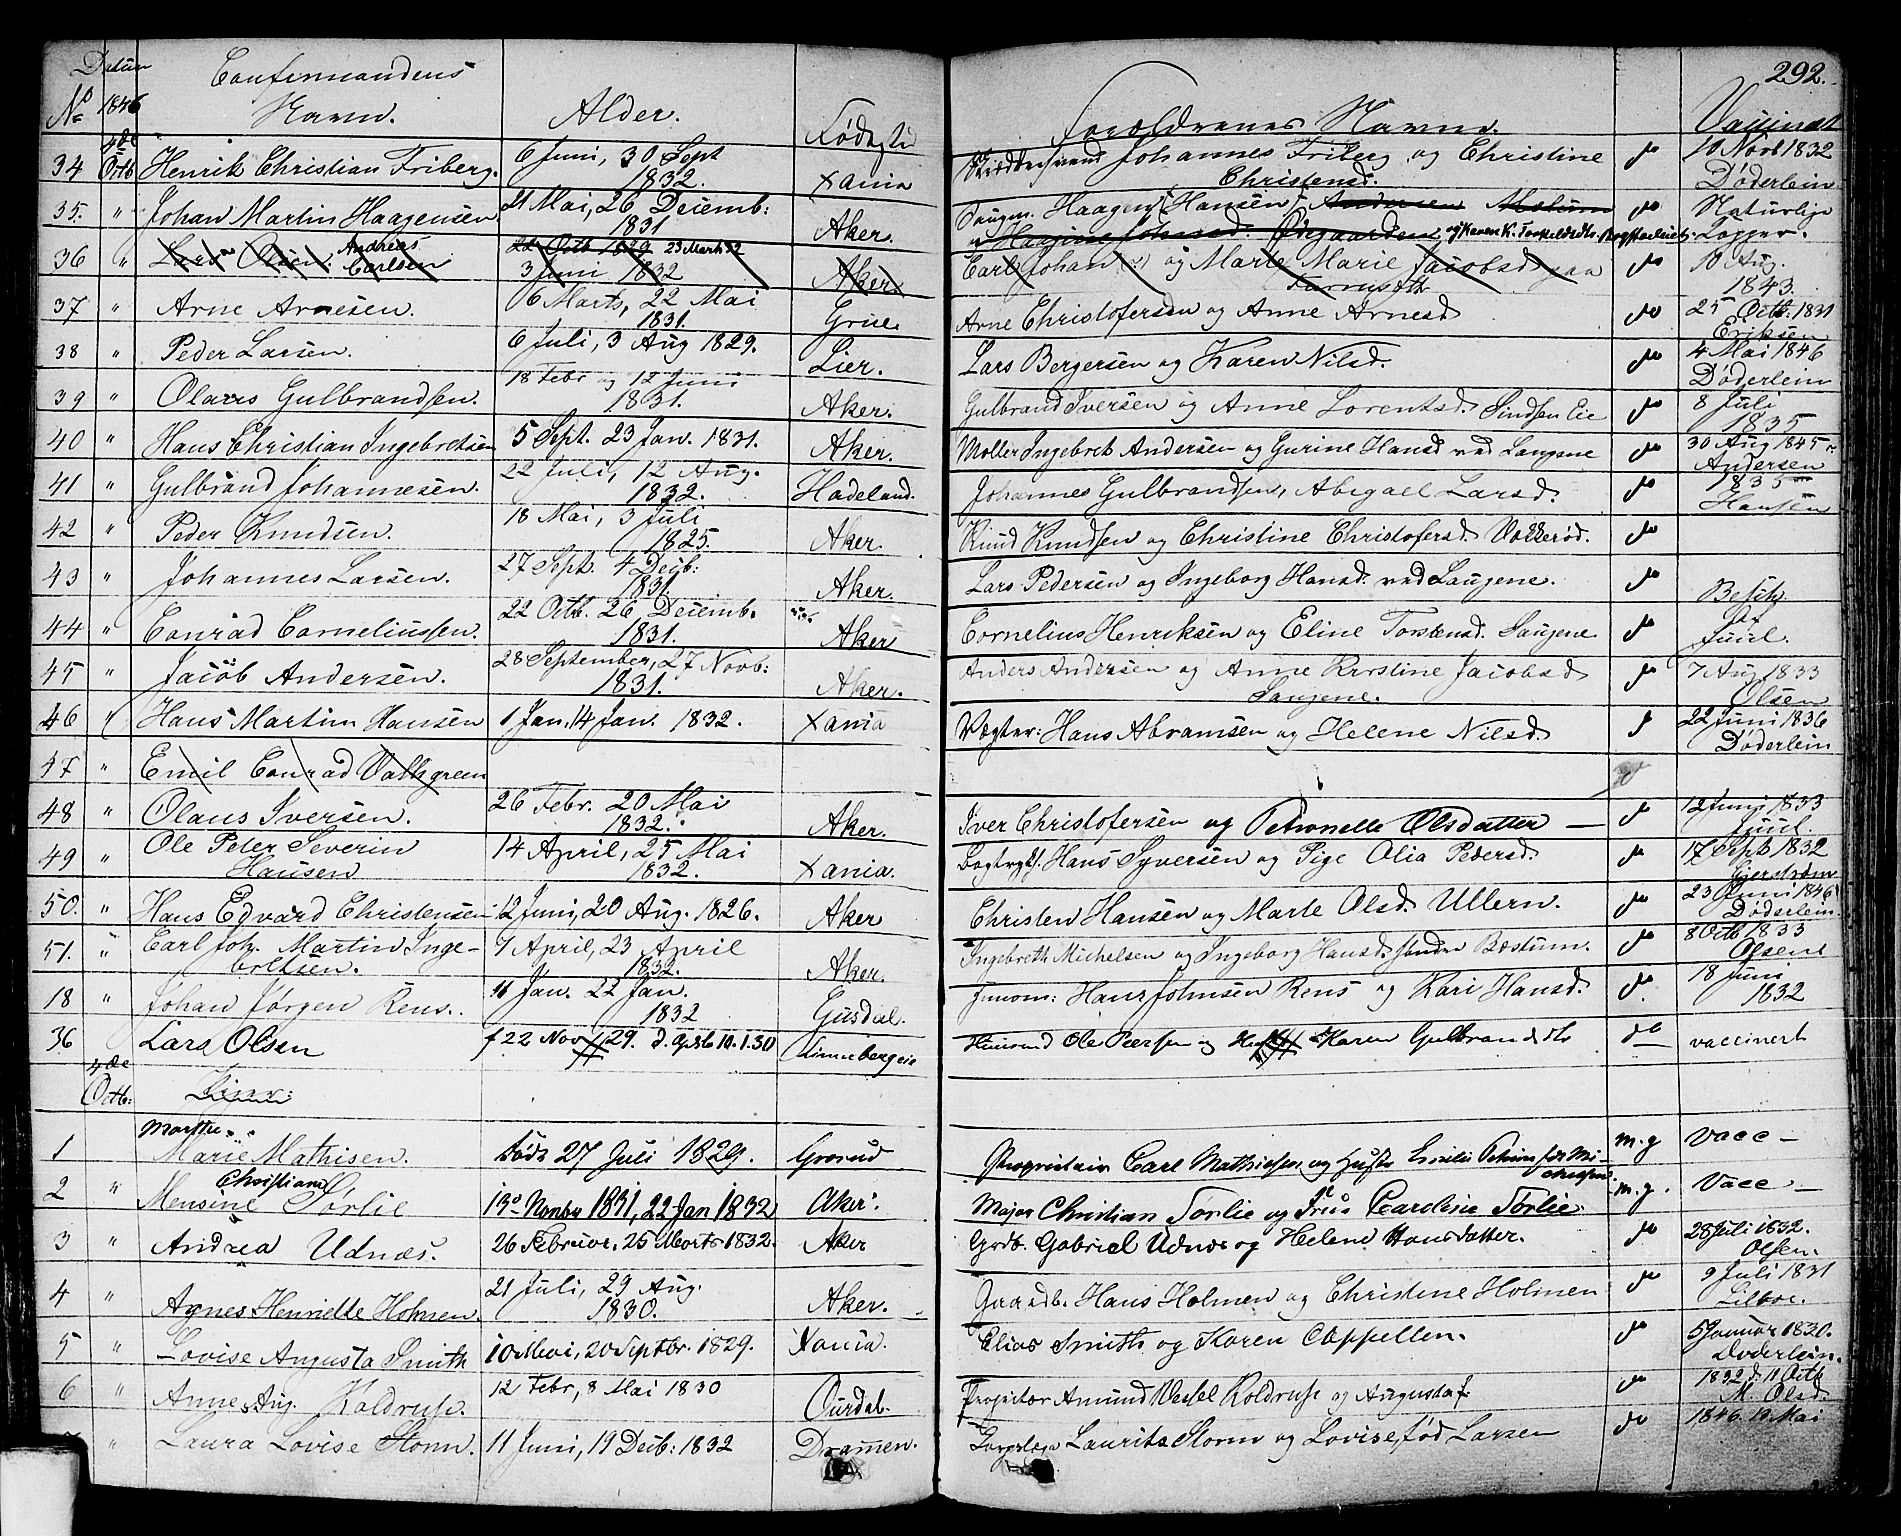 292.
Datum Confirmandens
No 1846 Navn. Alder. Fødested Forældrenes Navne. Vaccinat
4de Octb
34 Henrik Christian Friberg. 6 Juni, 30 Sept 1832. Xania Johannes Friberg og Christine Christensd. do 10 Novb 1832 Døderlein
35. " Johan Martin Haagensen 21 Mai, 26 Decemb: 1831 Aker. Haagen Hansen do Naturlige Kopper.
36 " Lars Olsen Andreas Carlsen 23 Mart 32 3 Juni 1832 Aker. Carl Johan og Marte Marie Jacobsd do 10 Aug. 1843.
37 " Arne Arnesen. 6 Marts, 22 Mai 1831. Grue. Arne Christofersen og Anne Arnesd. do 25 Octb: 1831 Eriksen
38 " Peder Larsen. 6 Juli, 3 Aug 1829. Lier. Lars Bergersen og Karen Nilsd. do 4 Mai 1846 Døderlein
39 " Olaus Gulbrandsen. 18 Febr og 12 Juni 1831. Aker. Gulbrand Iversen og Anne Lorentsd. Sindsen Eie do 8 Juli 1835
40 " Hans Christian Ingebretsen 5 Sept. 23 Jan. 1831. Aker. Møller Ingebret Andersen og Gurine Hansd ved Saugene do 30 Aug 1845 Andersen
41 " Gulbrand Johannesen. 22 Juli, 12 Aug. 1832. Hadeland. Johannes Gulbrandsen, Abigael Larsd. do 1835 Hansen
42 " Peder Knudsen. 18 Mai, 3 Juli 1825. Aker. Knud Knudsen og Christine Christofersd. Vækkerød. do
43 " Johannes Larsen. 27 Sept. 4 Decb: 1831. Aker. Lars Pedersen og Ingeborg Hansd. ved Saugene. do
44 " Conrad Corneliussen. 22 Octb. 26 Decemb. 1831. Aker Cornelius Henriksen og Eline Torstensd. Saugene do Besik af Juul.
45 " Jacob Andersen. 28 September, 27 Novb: 1831. Aker. Anders Andersen og Anne Kirstine Jacobsd Saugene. do 7 Aug 1833 Olsen
46 " Hans Martin Hansen 1 Jan. 14 Jan. 1832. Xania Vægter: Hans Abramsen og Helene Nilsd. do 22 Juni 1836 Døderlein
47 " Emil Conrad Vathgreen
48 " Olaus Iversen. 26 Febr. 20 Mai 1832. Aker. Iver Christofersen og Petronelle Olsdatter — do 12 Juni 1833 Juul.
49 " Ole Peter Severin Hansen 14 April, 25 Mai 1832. Xania. Hans Syversen og Pige Olia Pedersd. do 17 Septb 1832
50. " Hans Edvard Christensen 12 Juni, 20 Aug. 1826. Aker Christen Hansen og Marte Olsd. Ullern. do 23 Juni 1846 Døderlein
51. " Carl Joh. Martin Ingebretsen. 7 April, 23 April 1832. Aker. Ingebreth Michelsen og Ingeborg Hansd. Søndre Bæstum. do 8 Octb 1833 Olsen
18 " Johan Jørgen Rens. 11 Jan. 22 Jan. 1832 Gusdal. Hans Johnsen Rens og Kari Hansd. do 18 Juni 1832
36 Lars Olsen f 22 Nov 29. d. 10.1.30 Huusmand Ole Peersen og Karen Gulbrandsdtr do vaccinert
4de Octb: Piger:
1 Marthe Marie Mathisen. Født 27 Juli 1829. Grorud Proprietair Carl Mathiesen og Hustr m.g Vacc —
2 " Mensine Christiane Sørlie 13 Novber 1831, 22 Jan 1832 Aker. Major Christian Sørlie og Frue Caroline Sørlie. m.g. Vacc —
3 " Andrea Udnæs. 26 Februar. 25 Marts 1832. Aker Grdb. Gabriel Udnæs og Helene Hansdatter. do 28 Juli 1832. Olsen.
4 " Agnes Henriette Holmen. 21 Juli, 29 Aug. 1830. Aker. Gaardb. Hans Holmen og Christine Holmen do 9 Juli 1831
5 " Lovise Augusta Smith 10 Mai, 20 Septbr. 1829. Xania. Elias Smith og Karen Cappellen. do 5 Januar 1830. Døderlein.
6 " Anne Aug. Koldrup. 12 Febr, 8 Mai 1830 Ourdal. Amund og Augusta do 1832 d 11 Octb M. Olsd.
" Laura Lovise Storm. 11 Juni, 19 Decb: 1832 Dramen. Laurits Storm og Lovise, fød Larsen do 1846. 10 Mai